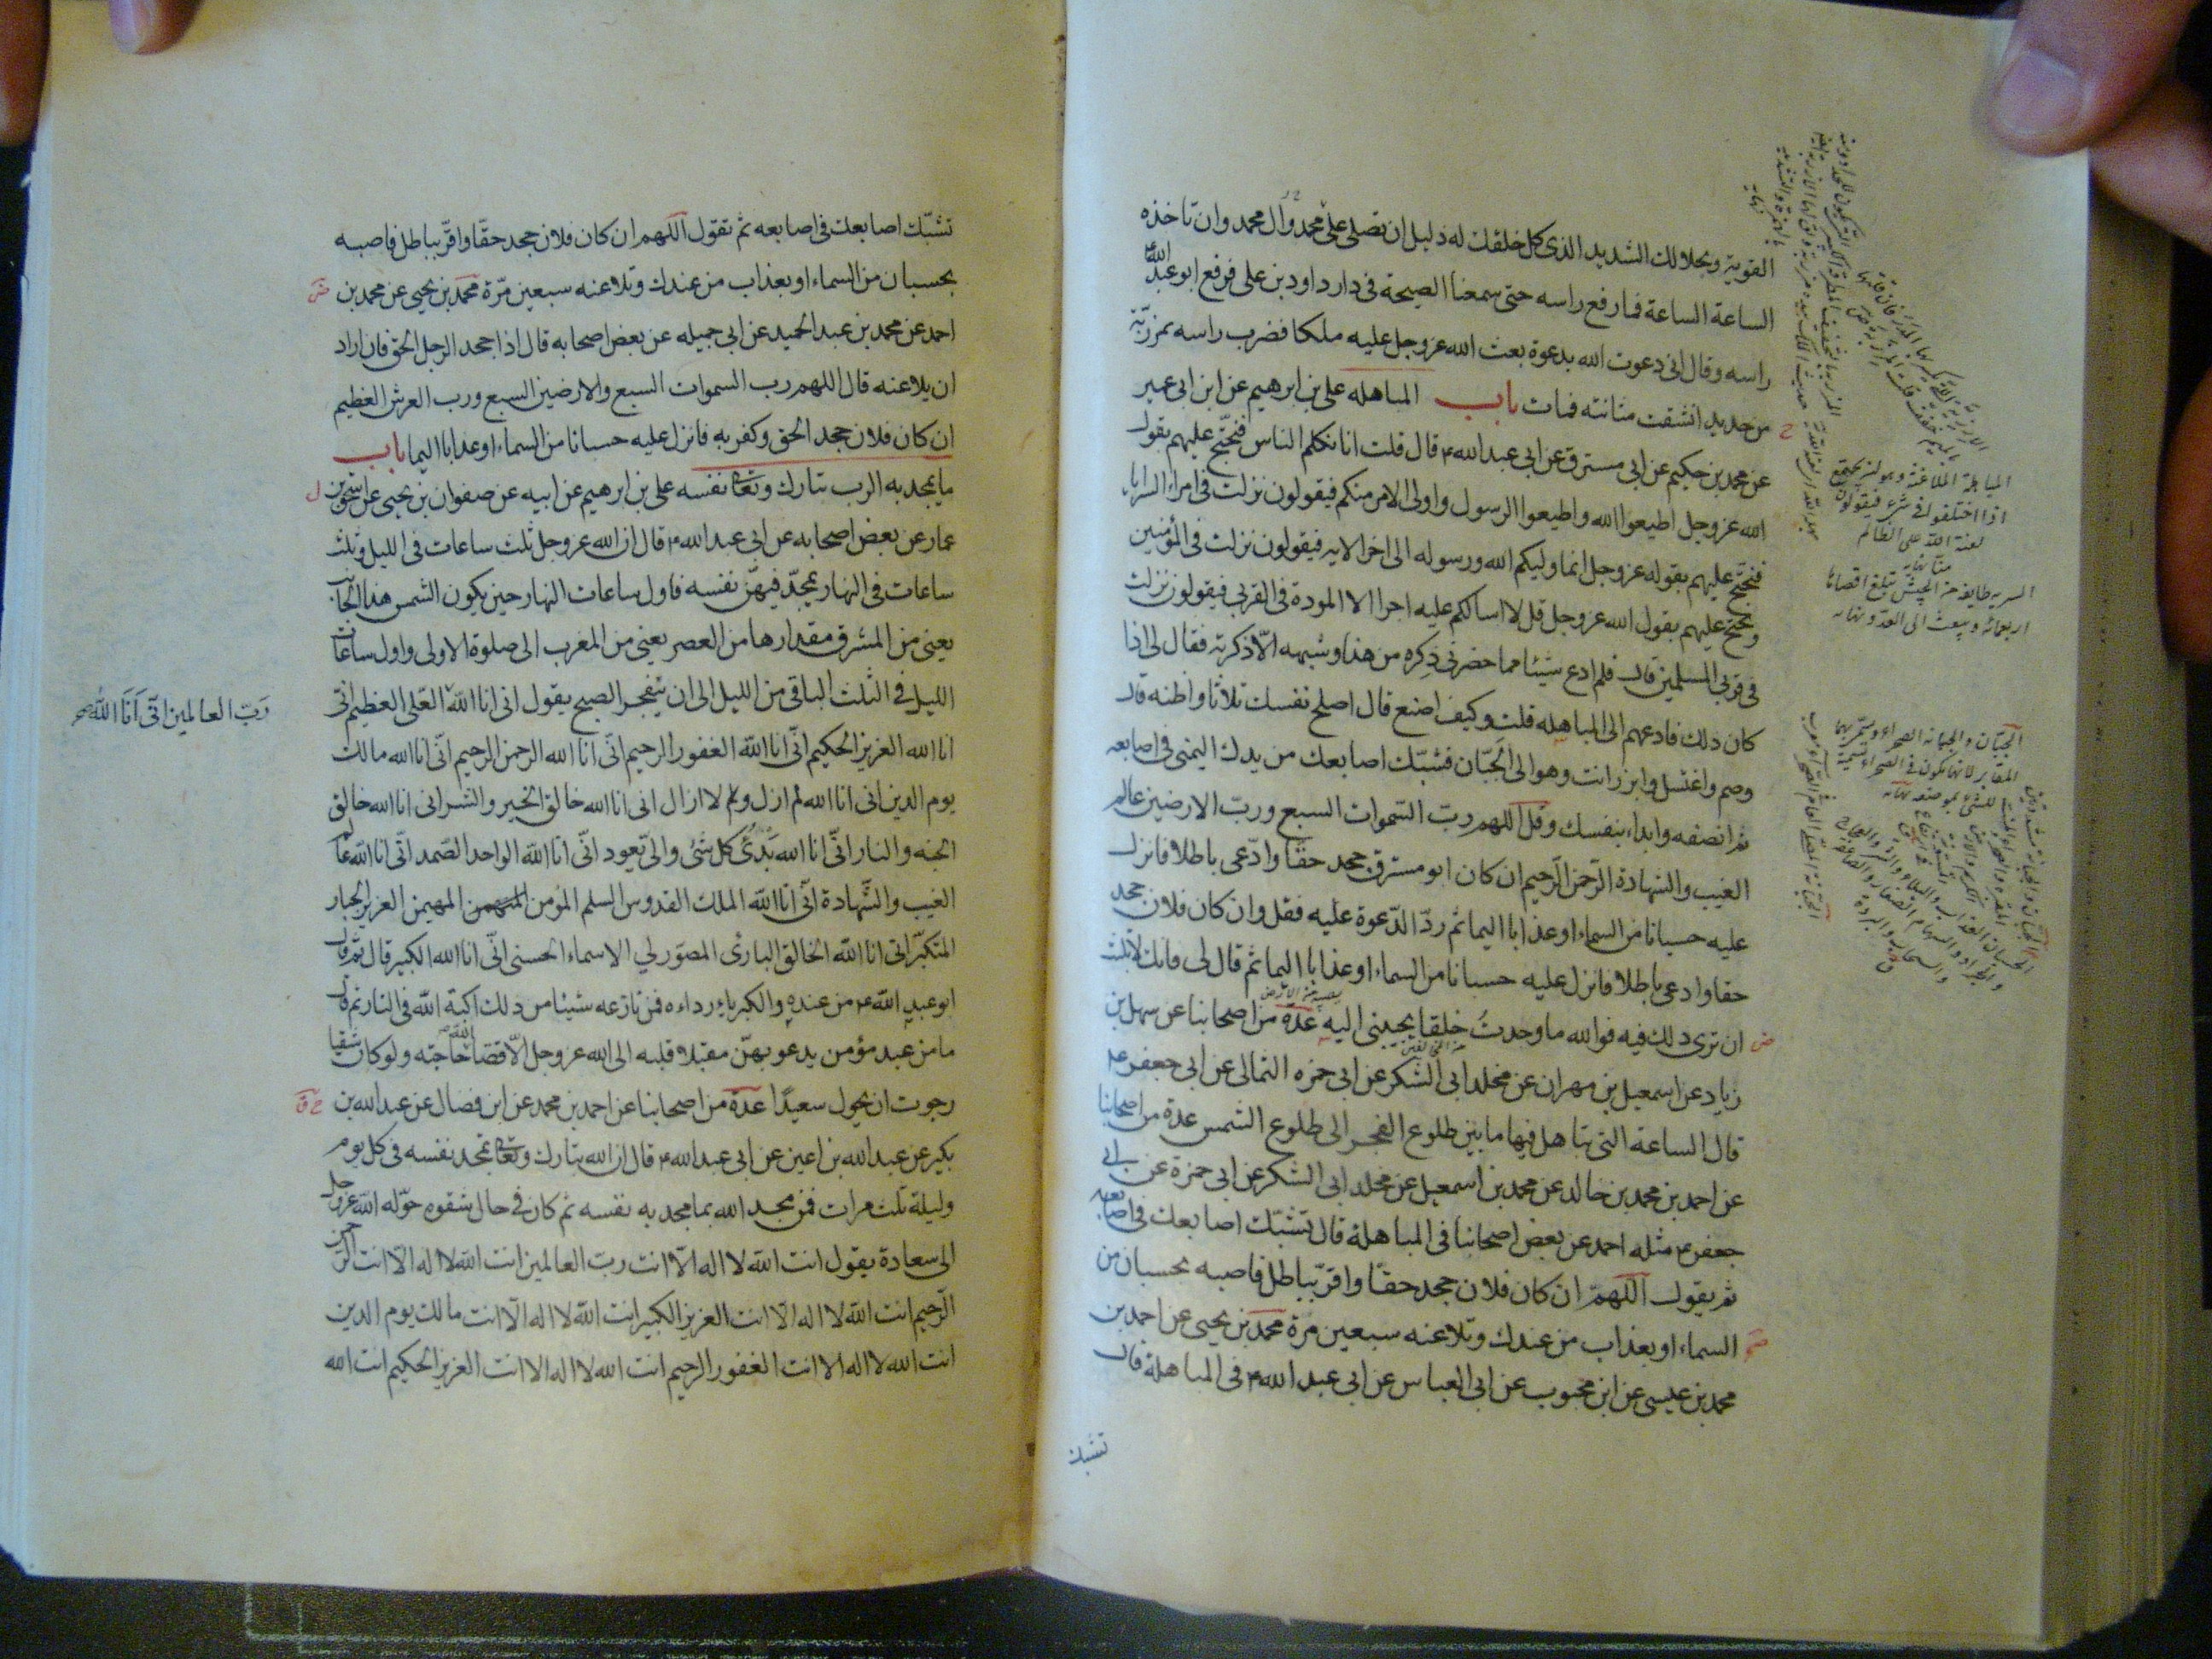 القوية وبجلالك الشديد الذى كل خلقك له ذليل ان تصلى على محمد وآل محمد وان تاخذه
الساعة الساعة فما رفع راسه حتى سمعنا الصيحة فى دار داود بن على فرفع ابو عبد الله
راسه وقال انى دعوت الله بدعوة بعث الله عز وجل عليه ملكا فضرب راسه بمرزبّة
من حديد انشقت مثانته فمات باب المباهله على بن ابرهيم عن ابن ابى عمير
عن محمد بن حكيم عن ابى مسترق عن ابى عبد الله ع قال قلت انا نكلم الناس فنحتج عليهم بقول
الله عز وجل اطيعوا الله واطيعوا الرسول واولى الامر منكم فيقولون نزلت فى امراء السرايا
فنحتج عليهم بقوله عز وجل انما وليكم الله ورسوله الى اخر الايه فيقولون نزلت فى المؤمنين
ونحتج عليهم بقول الله عز وجل قل لا اسالكم عليه اجرا الا المودة فى القربى فيقولون نزلت
فى قربى المسلمين قال فلم ادع شيئا مما حضرنى ذكره من هذا وشبهه الّا ذكرته فقال لى اذا
كان ذلك فادعهم الى المباهله قلت وكيف اصنع قال اصلح نفسك ثلاثا واظنه قال
وصم واغتسل وابرز انت وهو الى الجبّان فشبّك اصابعك من يدك اليمنى فى اصابعه
ثم انصفه وابداء بنفسك وقل اللهم ربّ السّموات السبع وربّ الارضين عالم
الغيب والشهادة الرّحمن الرّحيم ان كان ابو مسترق جحد حقّا وادّعى باطلا فانزل
عليه حسبانا من السماء او عذابا اليما ثم ردّ الدّعوة عليه فقل وان كان فلان جحد
حقا وادعى باطلا فانزل عليه حسبانا من السماء او عذابا اليما ثم قال لى فانك لا تلبث
ان ترى ذلك فيه فوالله ما وجدت خلقا يجيبنى اليه عدّة من اصحابنا عن سهل بن
زياد عن اسمعيل بن مهران عن مخلد ابى الشكر عن ابى حمزه الثمالى عن ابى جعفر ع
قال الساعة التى تباهل فيها ما بين طلوع الفجر الى طلوع الشمس عدة من اصحابنا
عن احمد بن محمد بن خالد عن محمد بن اسمعيل عن مخلد ابى الشكر عن ابى حمزة عن ابى
جعفر ع مثله احمد عن بعض اصحابنا فى المباهلة قال تشبّك اصابعك فى اصابعه
ثم يقول اللّهمّ ان كان فلان جحد حقّا واقرّ بباطل فاصبه بحسبان من
السماء او بعذاب من عندك وتلاعنه سبعين مرة محمد بن يحيى عن احمد بن
محمد بن عيسى عن ابن محبوب عن ابى العباس عن ابى عبد الله ع فى المباهلة قال
تشبك
المباهلة الملاعنة وهو ان يجتمع
اذا اختلفوا فى شىء فيقولون
لعنة الله على الظالم
منّا نهايه
السريه طايفة من الجيش تبلغ اقصاها
اربعمائه وتبعث الى العدو نهايه
الجبّان والجبانه الصحراء وتسمّى بهما
المقابر لانها تكون فى الصحراء تسمية
للشىء بموضعه نهايه
تشبّك اصابعك فى اصابعه ثم تقول اللّهم ان كان فلان جحد حقّا واقرّ بباطل فاصبه
بحسبان من السماء او بعذاب من عندك وتلاعنه سبعين مرّة محمد بن يحيى عن محمد بن
احمد عن محمد بن عبد الحميد عن ابى جميله عن بعض اصحابه قال اذا جحد الرجل الحق فان اراد
ان يلاعنه قال اللهم رب السموات السبع والارضين السبع ورب العرش العظيم
ان كان فلان جحد الحق وكفر به فانزل عليه حسبانا من السماء او عذابا اليما باب
ما يمجد به الرب تبارك وتعالى نفسه على بن ابرهيم عن ابيه عن صفوان بن يحيى عن اسحق بن
عمار عن بعض اصحابه عن ابى عبد الله ع قال ان لله عز وجل ثلث ساعات فى الليل وثلث
ساعات فى النهار يمجّد فيهنّ نفسه فاول ساعات النهار حين يكون الشمس هذا الجانب
يعنى من المشرق مقدارها من العصر يعنى من المغرب الى صلوة الاولى واول ساعات
الليل فى الثلث الباقى من الليل الى ان ينفجر الصبح يقول انى انا الله العلى العظيم انّى
انا الله العزيز الحكيم انّى انا الله الغفور الرحيم انّى انا الله الرحمن الرحيم انّى انا الله مالك
يوم الدين انى انا الله لم ازل ولا ازال انى انا الله خالق الخير والشر انى انا الله خالق
الجنه والنار انّى انا الله بَدْئُ كل شئ والىّ يعود انّى انا الله الواحد الصّمد انّى انا الله عالم
الغيب والشّهادة انّى انا الله الملك القدوس السلم المؤمن المهيمن العزيز الجبار
المتكبّر انى انا الله الخالق البارئ المصوّر لي الاسماء الحسنى انّى انا الله الكبير قال ثم قال
ابو عبد الله ع من عنده والكبرياء رداءه فمن نازعه شيئا من ذلك اكبّه الله فى النار ثم قال
ما من عبد مؤمن يدعو بهنّ مقبلا قلبه الى الله عز وجل الّا قضا الله حاجته ولو كان شقيا
رجوت ان يحول سعيدًا عدّة من اصحابنا عن احمد بن محمد عن ابن فضال عن عبد الله بن
بكير عن عبد الله بن اعين عن ابى عبد الله ع قال ان الله تبارك وتعالى يمجد نفسه فى كل يوم
وليلة ثلث مرات فمن مجد الله بما مجد به نفسه ثم كان فى حال شقوه حوّله الله عز وجل
الى سعادة يقول انت الله لا اله الّا انت ربّ العالمين انت الله لا اله الّا انت الرّحمن
الرّحيم انت الله لا اله الّا انت العزيز الكبير انت الله لا اله الّا انت مالك يوم الدين
انت الله لا اله الا انت الغفور الرحيم انت الله لا اله الا انت العزيز الحكيم انت الله
رَبّ العالمين انّى اَنَا الله